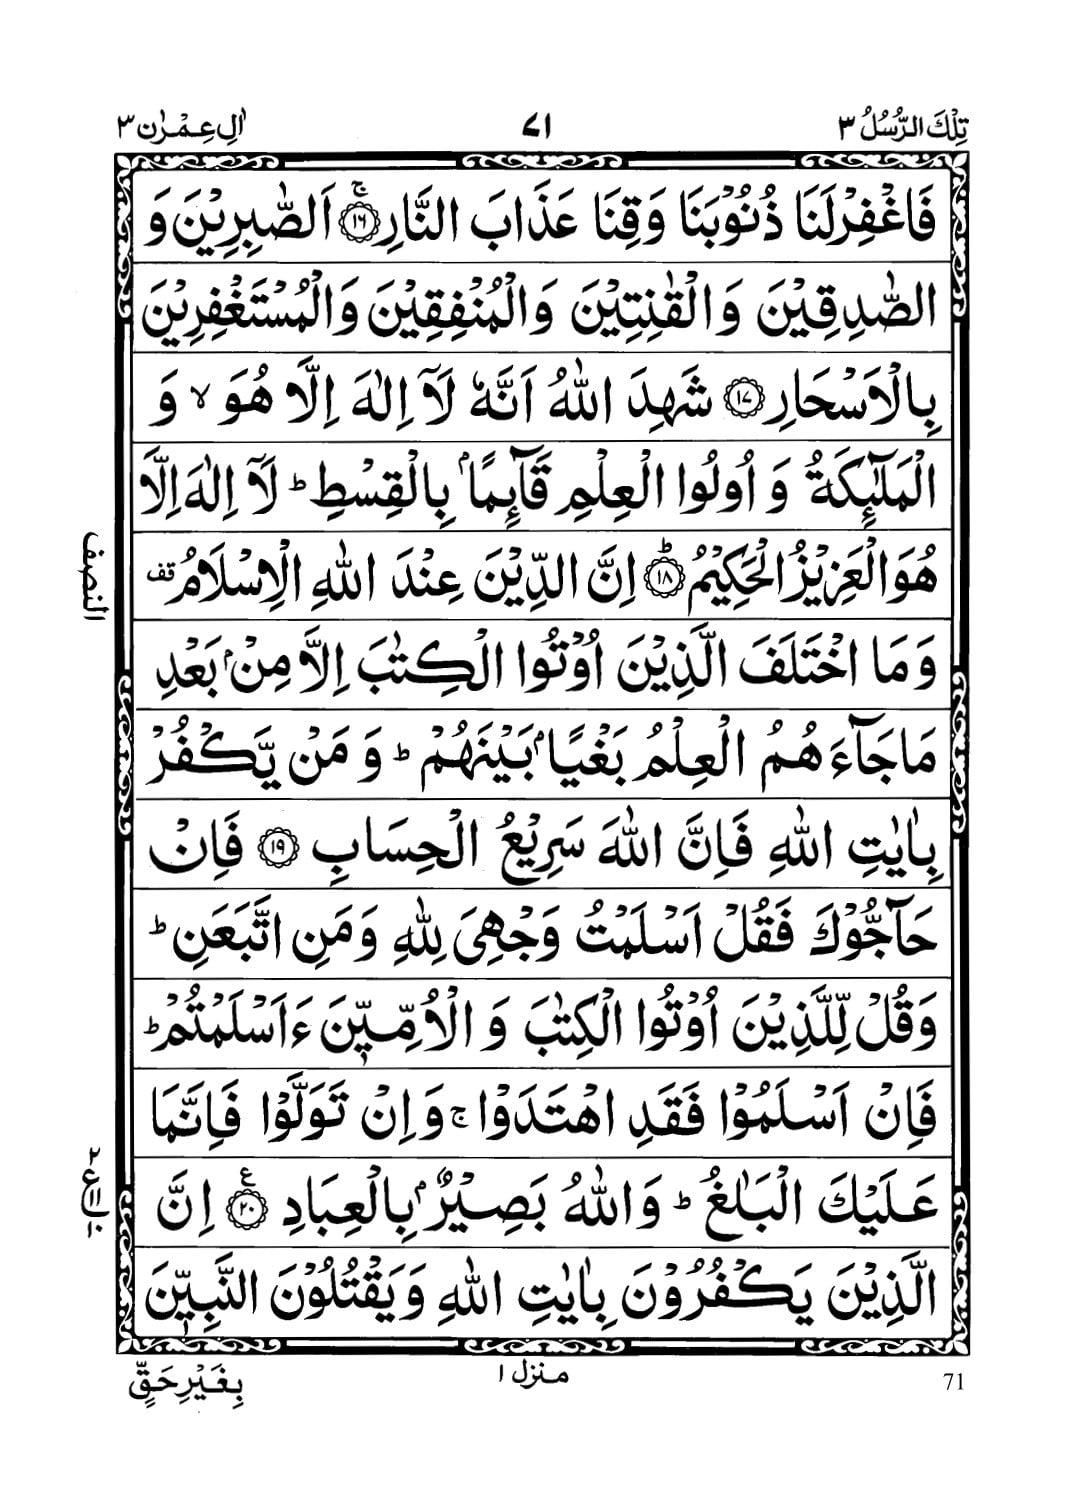 تِلْكَ الرُّسُلُ ٣
٧١
اٰلِ عِمْرٰن ٣
فَاغْفِرْلَنَا ذُنُوْبَنَا وَقِنَا عَذَابَ النَّارِ ۚ ﴿١٦﴾ اَلصّٰبِرِيْنَ وَ
الصّٰدِقِيْنَ وَالْقٰنِتِيْنَ وَالْمُنْفِقِيْنَ وَالْمُسْتَغْفِرِيْنَ
بِالْاَسْحَارِ ﴿١٧﴾ شَهِدَ اللّٰهُ اَنَّهٗ لَاۤ اِلٰهَ اِلَّا هُوَ ۙ وَ
الْمَلٰٓئِكَةُ وَ اُولُوا الْعِلْمِ قَآئِمًاۢ بِالْقِسْطِ ؕ لَاۤ اِلٰهَ اِلَّا
هُوَ الْعَزِيْزُ الْحَكِيْمُ ؕ ﴿١٨﴾ اِنَّ الدِّيْنَ عِنْدَ اللّٰهِ الْاِسْلَامُ قف
النصف
وَمَا اخْتَلَفَ الَّذِيْنَ اُوْتُوا الْكِتٰبَ اِلَّا مِنْۢ بَعْدِ
مَاجَآءَهُمُ الْعِلْمُ بَغْيًاۢ بَيْنَهُمْ ؕ وَمَنْ يَّكْفُرْ
بِاٰيٰتِ اللّٰهِ فَاِنَّ اللّٰهَ سَرِيْعُ الْحِسَابِ ﴿١٩﴾ فَاِنْ
حَآجُّوْكَ فَقُلْ اَسْلَمْتُ وَجْهِيَ لِلّٰهِ وَمَنِ اتَّبَعَنِ ؕ
وَقُلْ لِّلَّذِيْنَ اُوْتُوا الْكِتٰبَ وَ الْاُمِّيّٖنَ ءَاَسْلَمْتُمْ ؕ
فَاِنْ اَسْلَمُوْا فَقَدِ اهْتَدَوْا ۚ وَاِنْ تَوَلَّوْا فَاِنَّمَا
عَلَيْكَ الْبَلٰغُ ؕ وَاللّٰهُ بَصِيْرٌۢ بِالْعِبَادِ ﴿٢٠﴾ ع اِنَّ
الَّذِيْنَ يَكْفُرُوْنَ بِاٰيٰتِ اللّٰهِ وَيَقْتُلُوْنَ النَّبِيّٖنَ
منزل ١
بِغَيْرِحَقٍّ
71